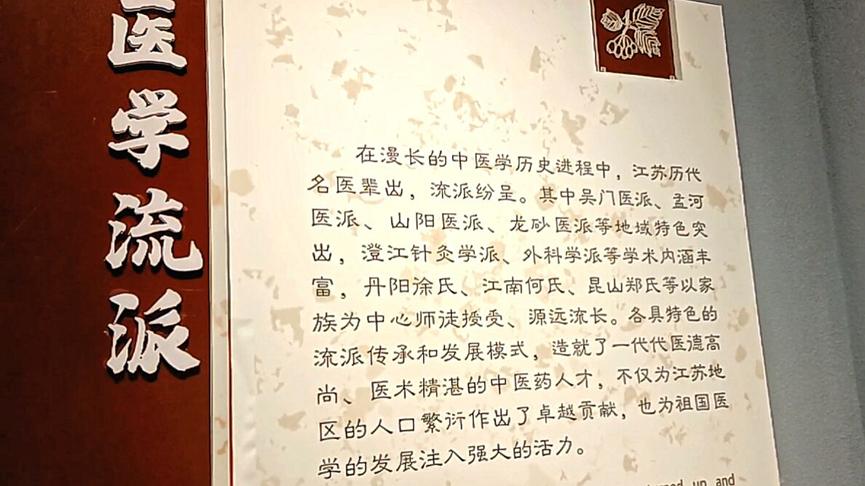 医学流派
在漫长的中医学历史进程中，江苏历代
名医辈出，流派纷呈。其中吴门医派、孟河
医派、山阳医派、龙砂医派等地域特色突
出，澄江针灸学派、外科学派等学术内涵丰
富，丹阳徐氏、江南何氏、昆山郑氏等以家
族为中心师徒授受、源远流长。各具特色的
流派传承和发展模式，造就了一代代医德高
尚、医术精湛的中医药人才，不仅为江苏地
区的人口繁衍作出了卓越贡献，也为祖国医
学的发展注入强大的活力。
up and